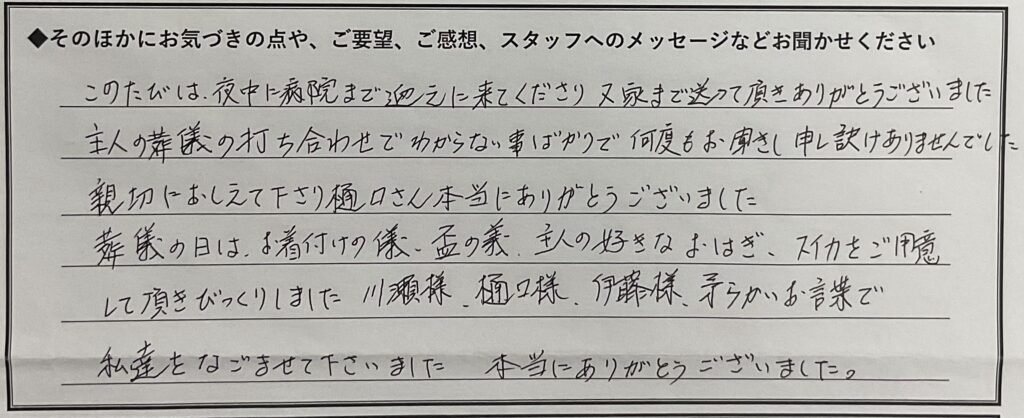 ◆そのほかにお気づきの点や、ご要望、ご感想、スタッフへのメッセージなどお聞かせください
このたびは、夜中に病院まで迎えに来てくださり又家まで送って頂きありがとうございました
主人の葬儀の打ち合わせでわからない事ばかりで何度もお聞きし申し訳けありませんでした
親切におしえて下さり樋口さん本当にありがとうございました
葬儀の日は、お着付けの儀、盃の義、主人の好きなおはぎ、スイカをご用意
して頂きびっくりしました 川瀬様、樋口様、伊藤様、柔らかいお言葉で
私達をなごませて下さいました 本当にありがとうございました。